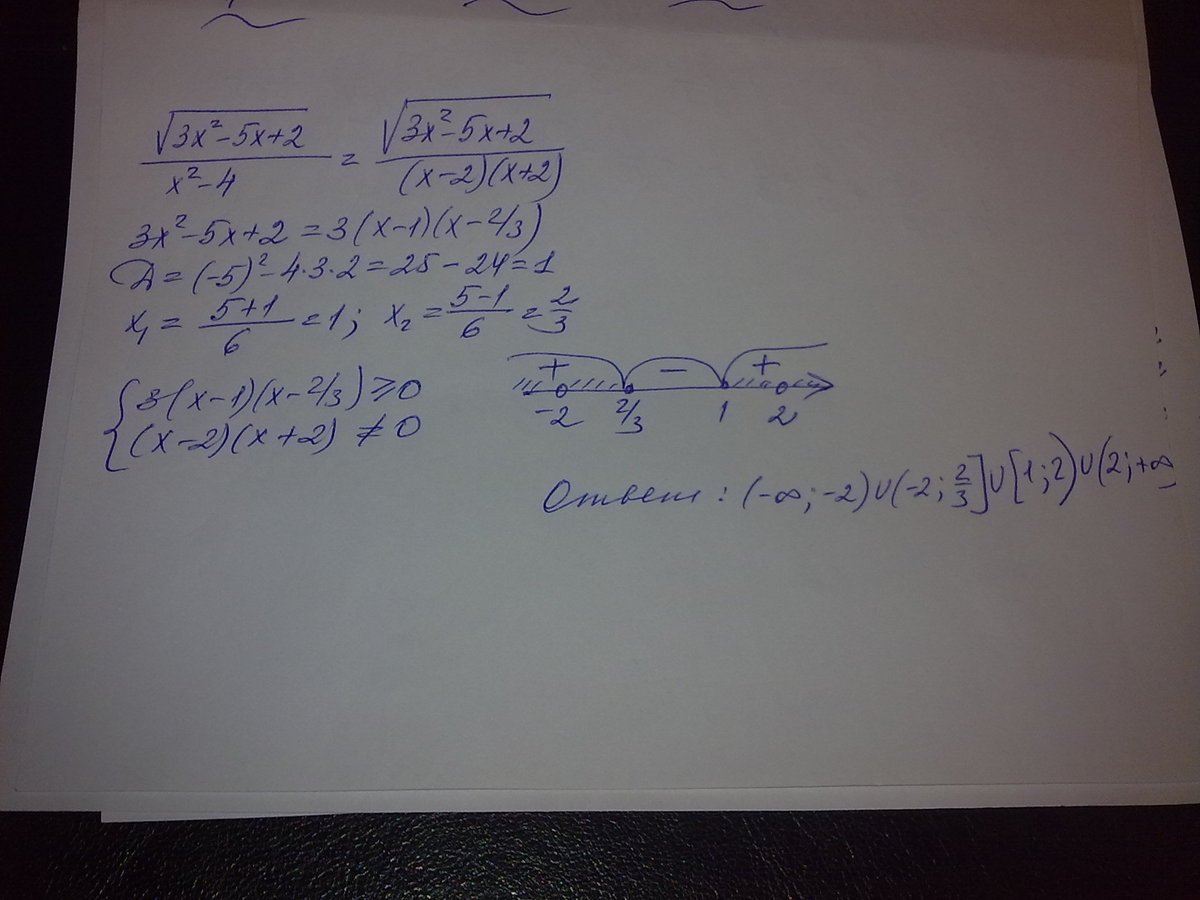 √(3x²-5x+2) / (x²-4) = √(3x²-5x+2) / ((x-2)(x+2))
3x²-5x+2 = 3(x-1)(x-2/3)
D = (-5)²-4·3·2 = 25-24 = 1
x₁ = (5+1)/6 = 1; x₂ = (5-1)/6 = 2/3
{ 3(x-1)(x-2/3) ≥ 0
(x-2)(x+2) ≠ 0
+ - +
-2 2/3 1 2
Ответ: (-∞; -2)∪(-2; 2/3]∪[1; 2)∪(2; +∞